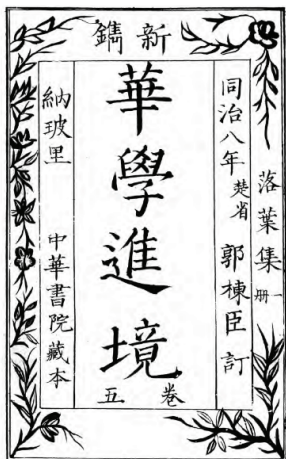 新鐫
落葉集 一冊
同治八年 楚省 郭棟臣 訂
華學進境
卷五
納玻里 中華書院藏本